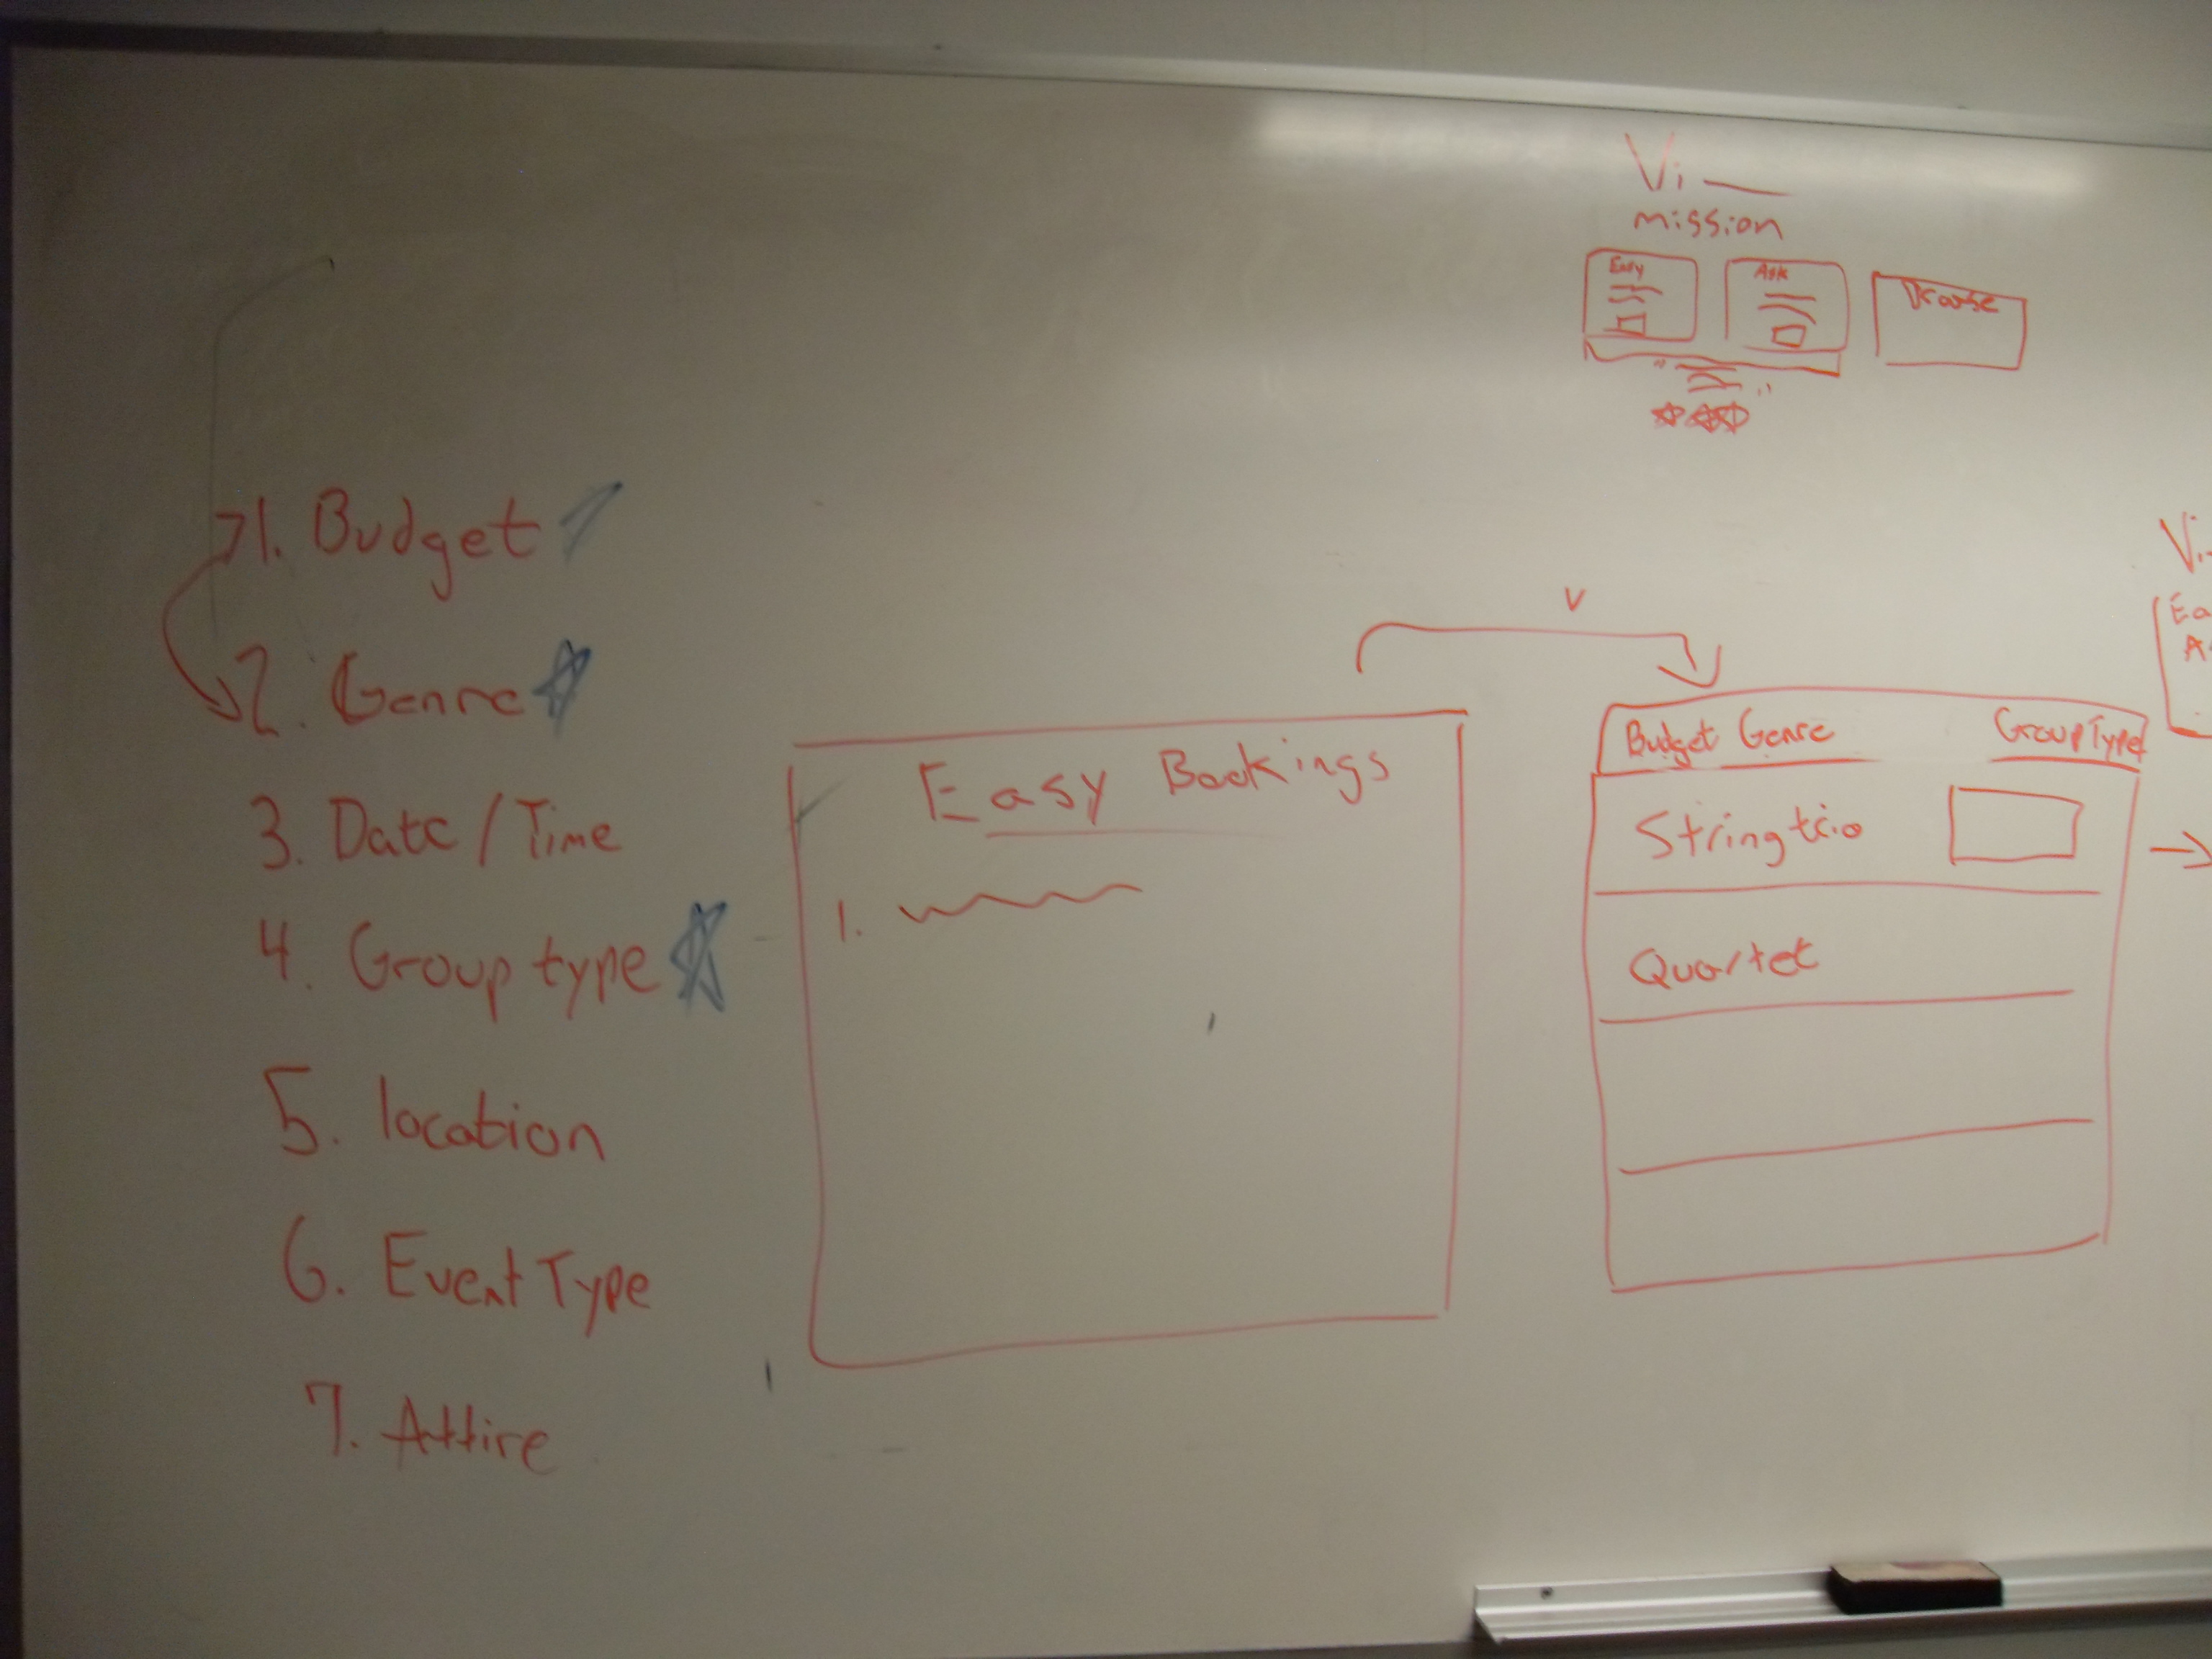 Vi
mission
Easy
Ask
1. Budget
2. Genre
3. Date / Time
4. Group type
5. location
6. Event Type
7. Attire
Easy Bookings
1.
V
Budget Genre Group Type
String trio
Quartet
Vi
Ea
A